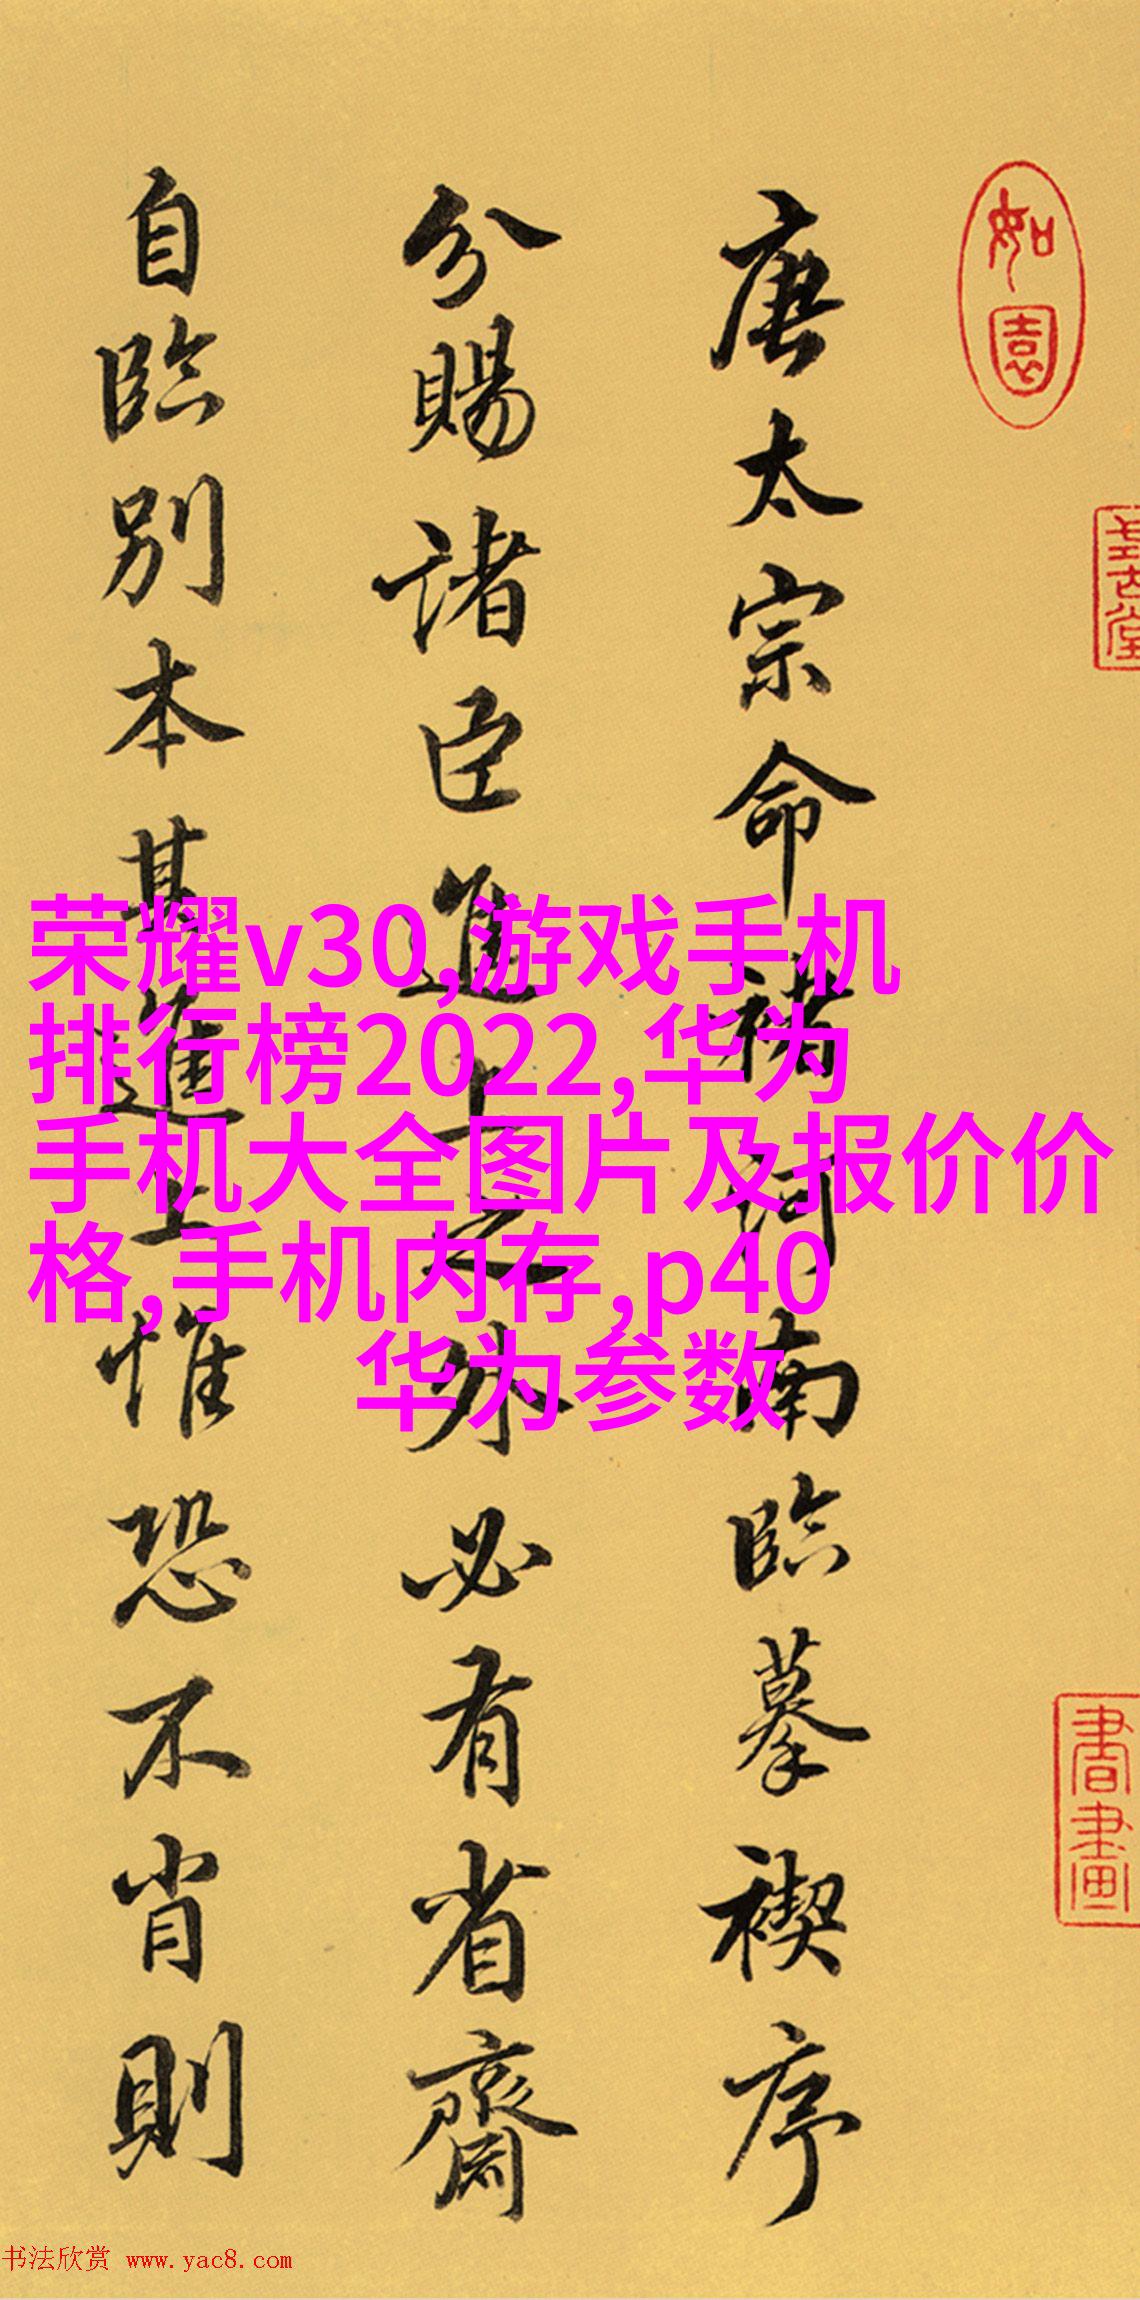 如園
書畫
唐太宗命褚河南臨摹禊序
分賜諸臣進上之外必有省齋
自臨別本其進上惟恐不肖則
荣耀v30,游戏手机
排行榜2022,华为
手机大全图片及报价价
格,手机内存,p40
华为参数
书法欣赏 www.yac8.com